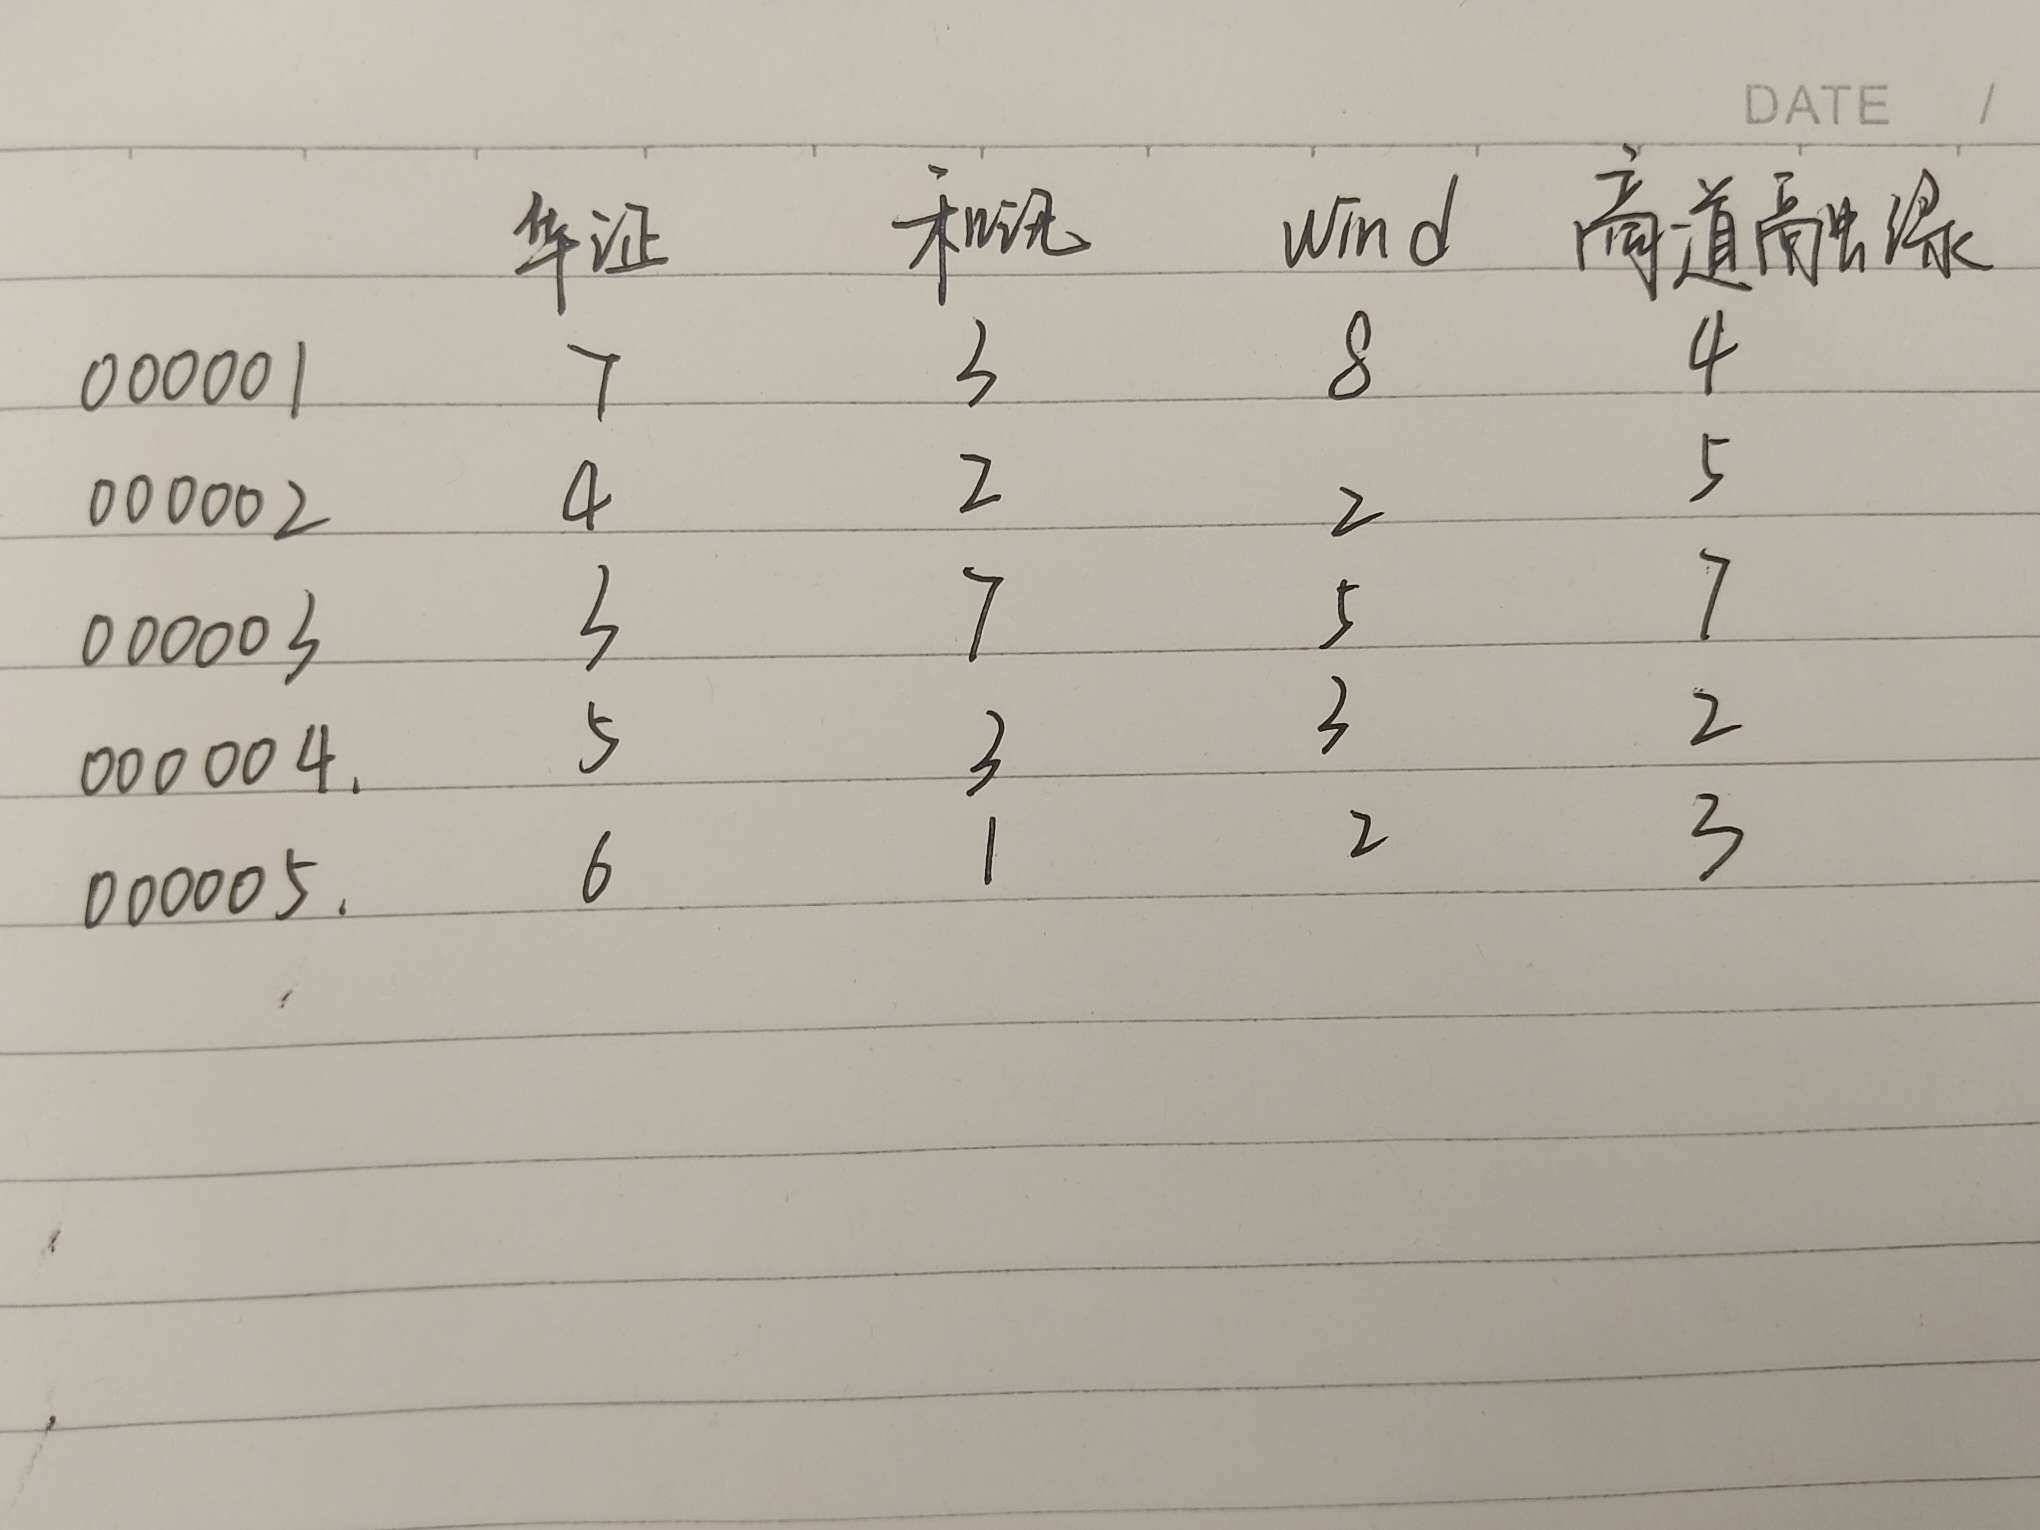 DATE /
华证 和讯 Wind 商道融绿
000001 7 3 8 4
000002 4 2 2 5
000003 3 7 5 7
000004. 5 3 3 2
000005. 6 1 2 3